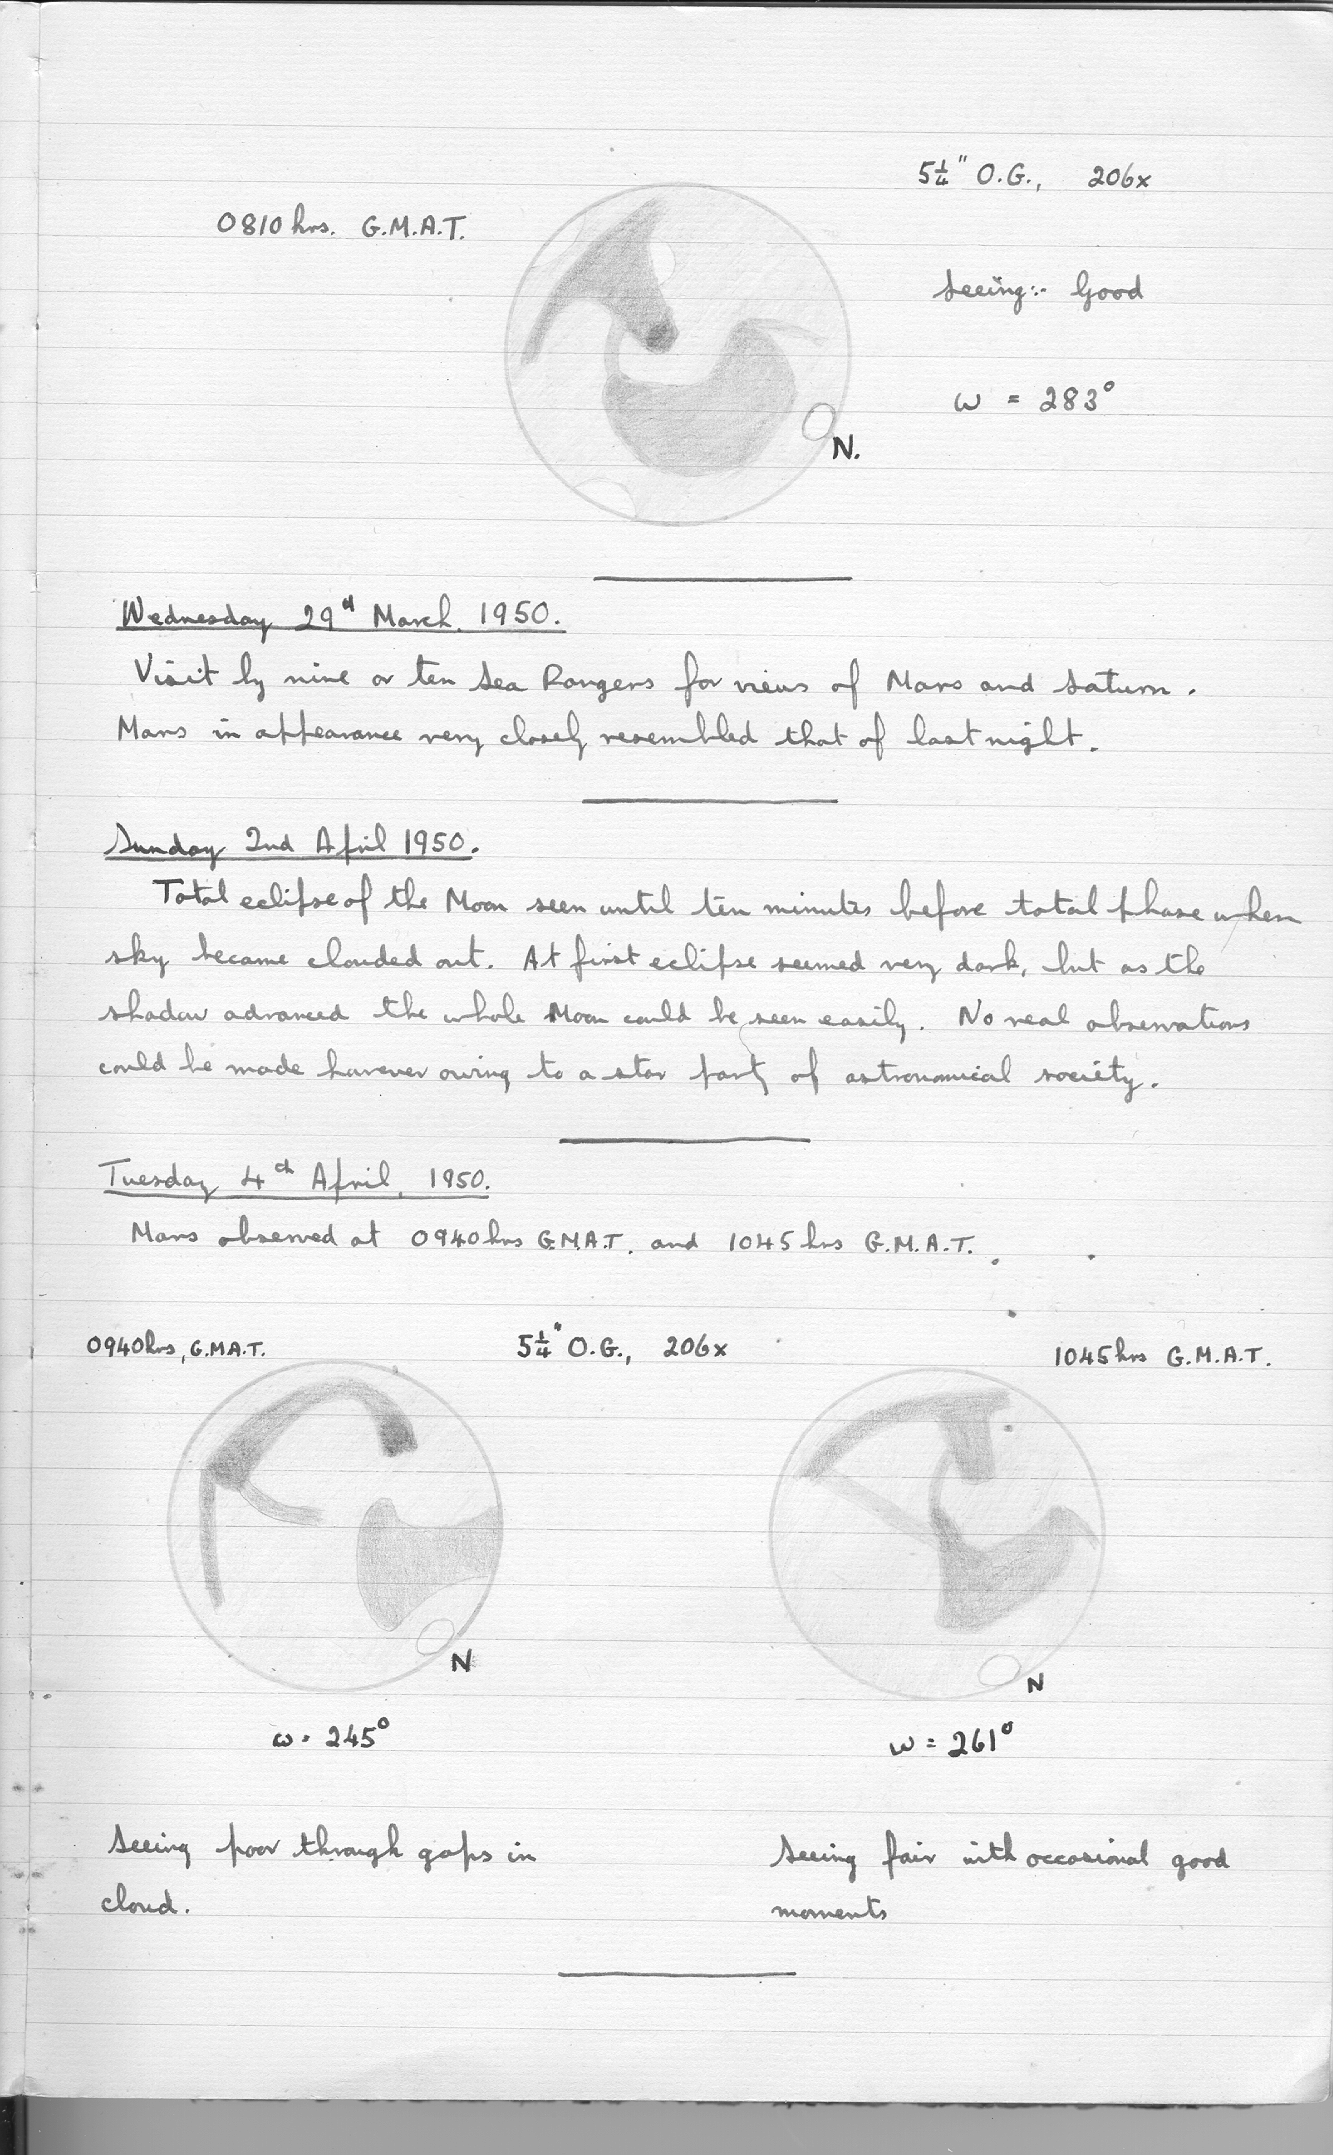 5¼" O.G., 206x
0810 hrs. G.M.A.T.
Seeing:- Good
ω = 283°
N.
Wednesday 29th March, 1950.
Visit by nine or ten Sea Rangers for views of Mars and Saturn.
Mars in appearance very closely resembled that of last night.
Sunday 2nd April 1950.
Total eclipse of the Moon seen until ten minutes before total phase when
sky became clouded out. At first eclipse seemed very dark, but as the
shadow advanced the whole Moon could be seen easily. No real observations
could be made however owing to a star party of astronomical society.
Tuesday 4th April, 1950.
Mars observed at 0940 hrs G.M.A.T. and 1045 hrs G.M.A.T.
0940 hrs, G.M.A.T. 5¼" O.G., 206x 1045 hrs G.M.A.T.
N N
ω = 245° ω = 261°
Seeing poor through gaps in
cloud.
Seeing fair with occasional good
moments